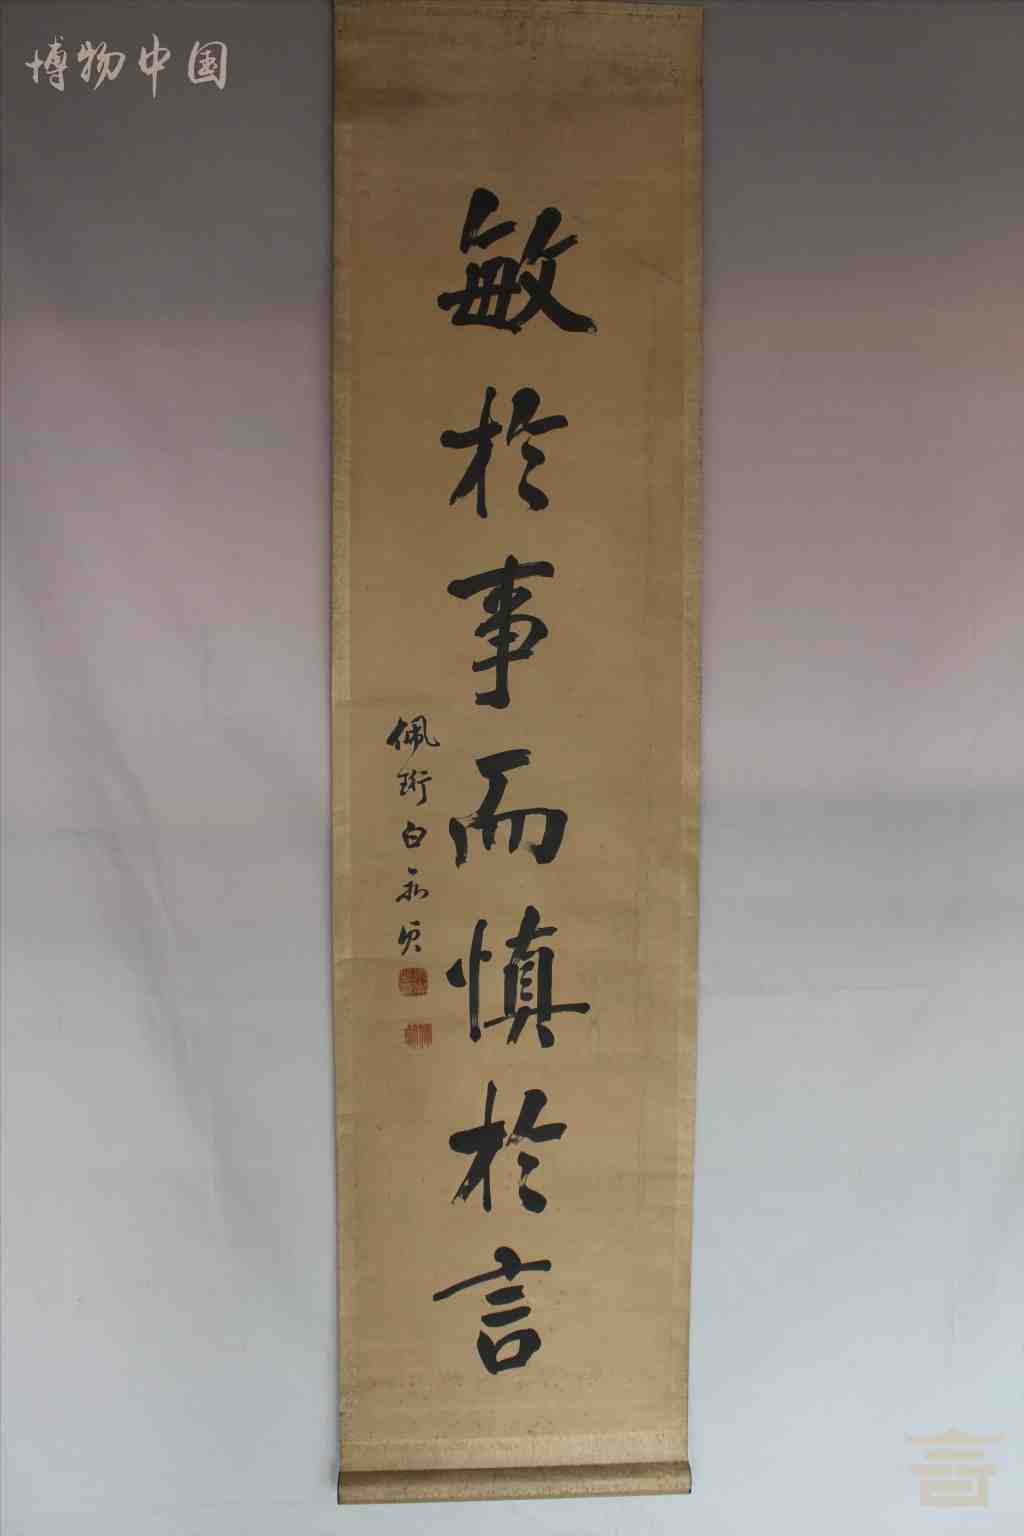 博物中国
敏於事而慎於言
佩珩白永貞